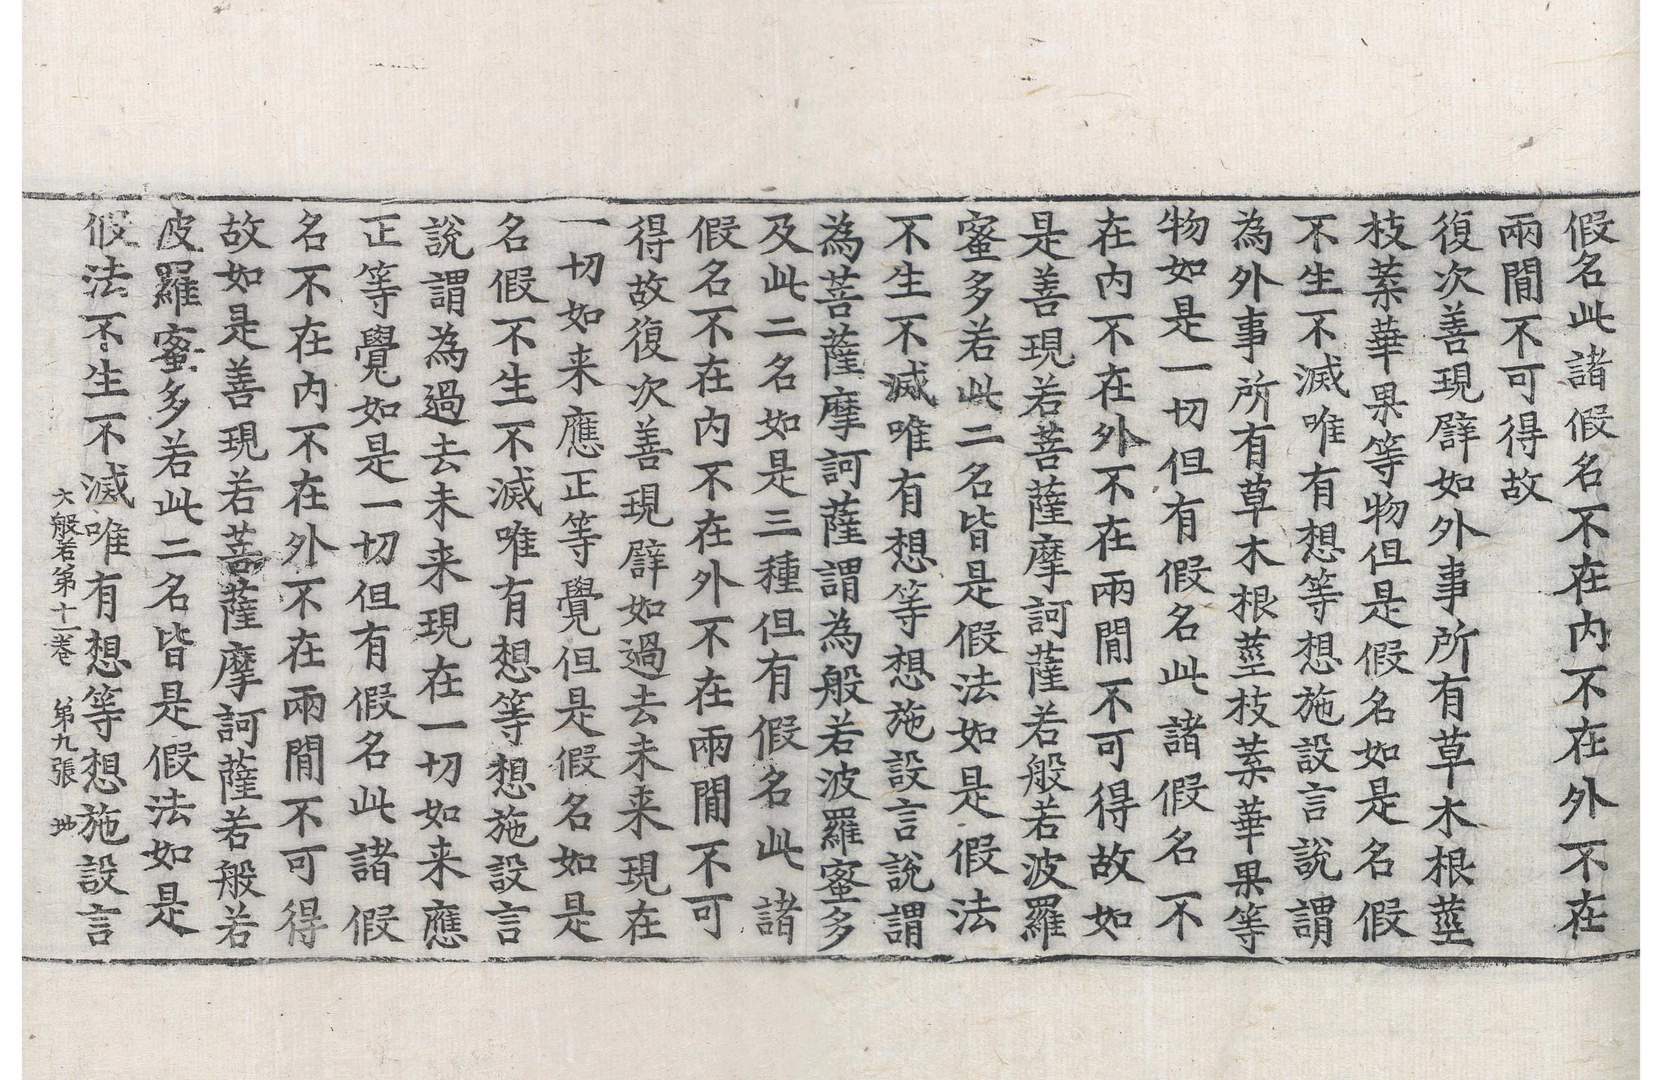 假名此諸假名不在內不在外不在
兩閒不可得故
復次善現譬如外事所有草木根莖
枝葉華果等物但是假名如是名假
不生不滅唯有想等想施設言說謂
為外事所有草木根莖枝葉華果等
物如是一切但有假名此諸假名不
在內不在外不在兩閒不可得故如
是善現若菩薩摩訶薩若般若波羅
蜜多若此二名皆是假法如是假法
不生不滅唯有想等想施設言說謂
為菩薩摩訶薩謂為般若波羅蜜多
及此二名如是三種但有假名此諸
假名不在內不在外不在兩閒不可
得故復次善現譬如過去未来現在
一切如来應正等覺但是假名如是
名假不生不滅唯有想等想施設言
說謂為過去未来現在一切如来應
正等覺如是一切但有假名此諸假
名不在內不在外不在兩閒不可得
故如是善現若菩薩摩訶薩若般若
波羅蜜多若此二名皆是假法如是
假法不生不滅唯有想等想施設言
大般若第十一卷 第九張 地